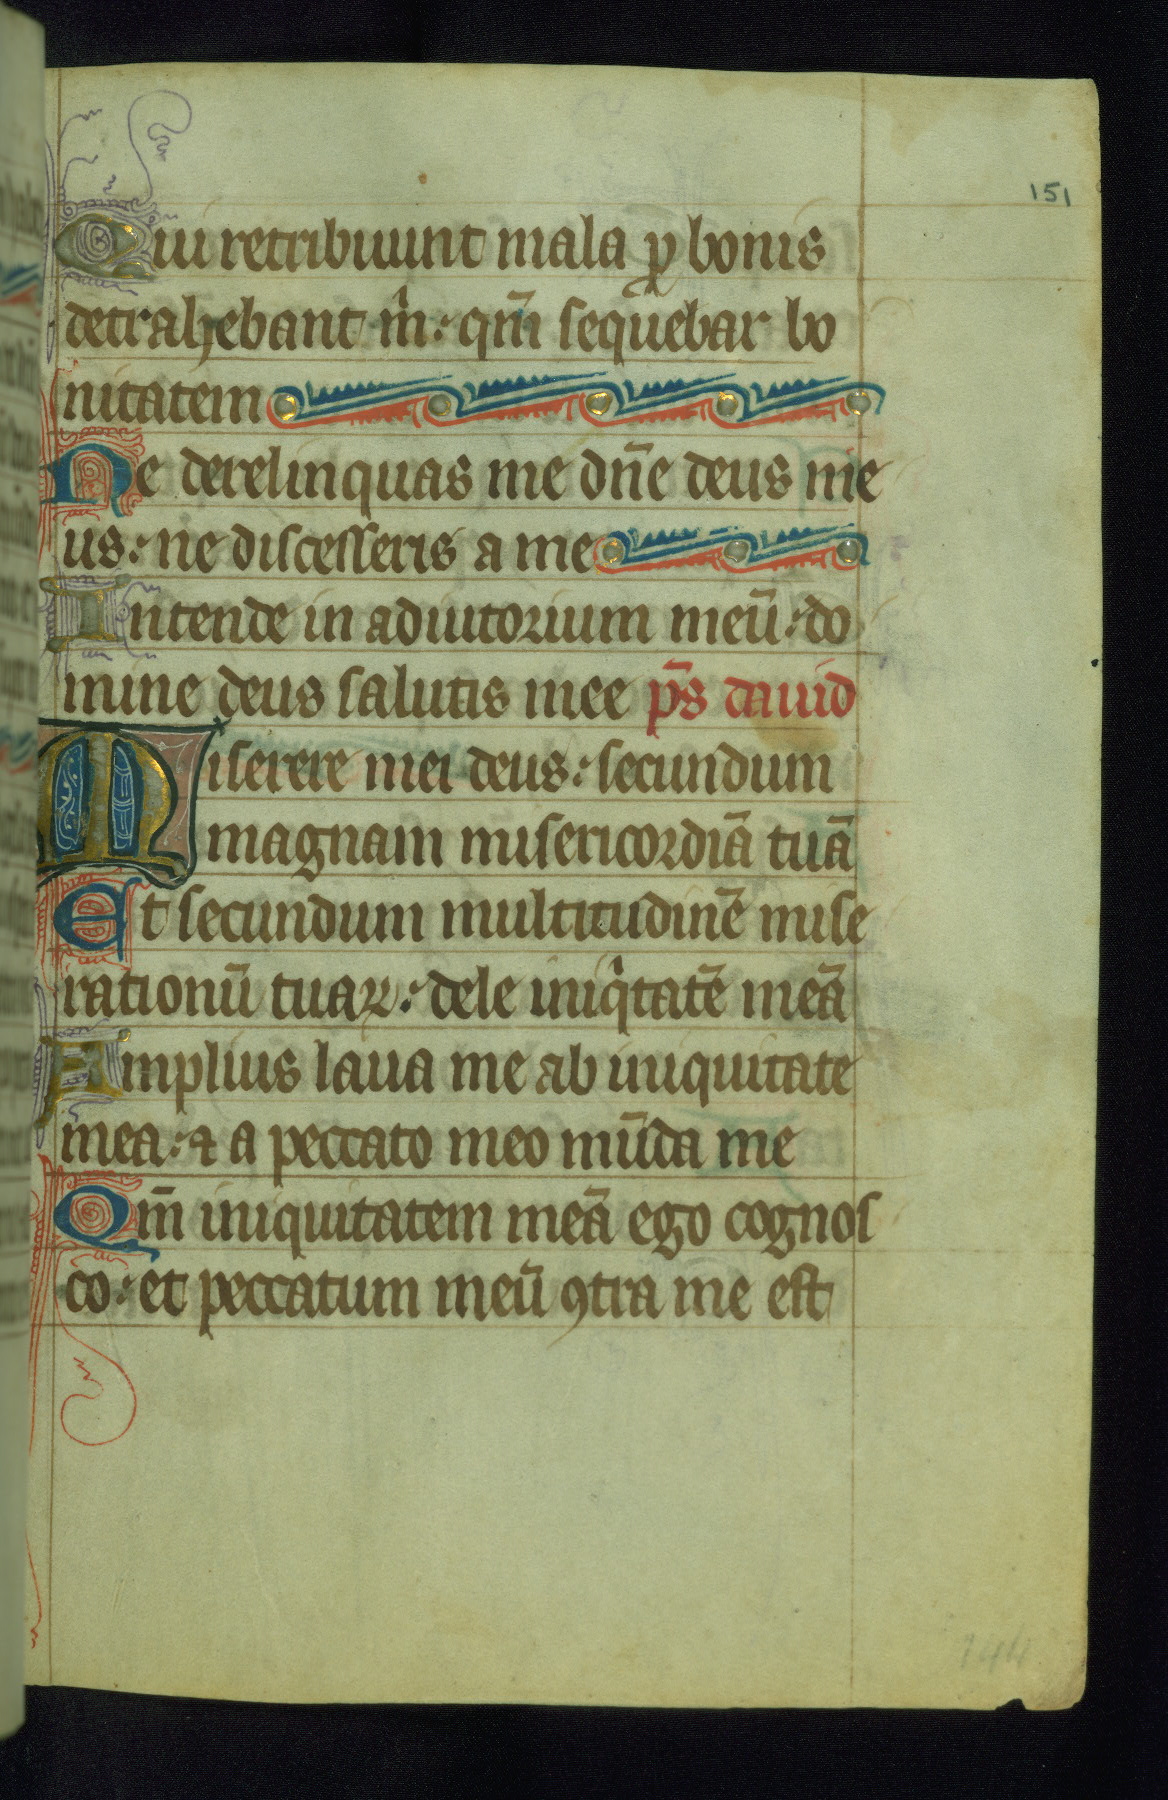 151
Qui retribuunt mala ꝓ bonis
detrahebant m̂: qm̄ sequebar bo
nitatem
Ne derelinquas me dn̄e deus me
us: ne discesseris a me
Intende in adiutorium meū: do
mine deus salutis mee ps̄ dauid
Miserere mei deus: secundum
magnam misericordiā tuā
Et secundum multitudinē mise
rationū tuaꝝ: dele iniq̂tatē meā
Amplius laua me ab iniquitate
mea: ⁊ a peccato meo mūda me
Qm̄ iniquitatem meā ego cognos
co: et peccatum meū ꝯtra me est
144